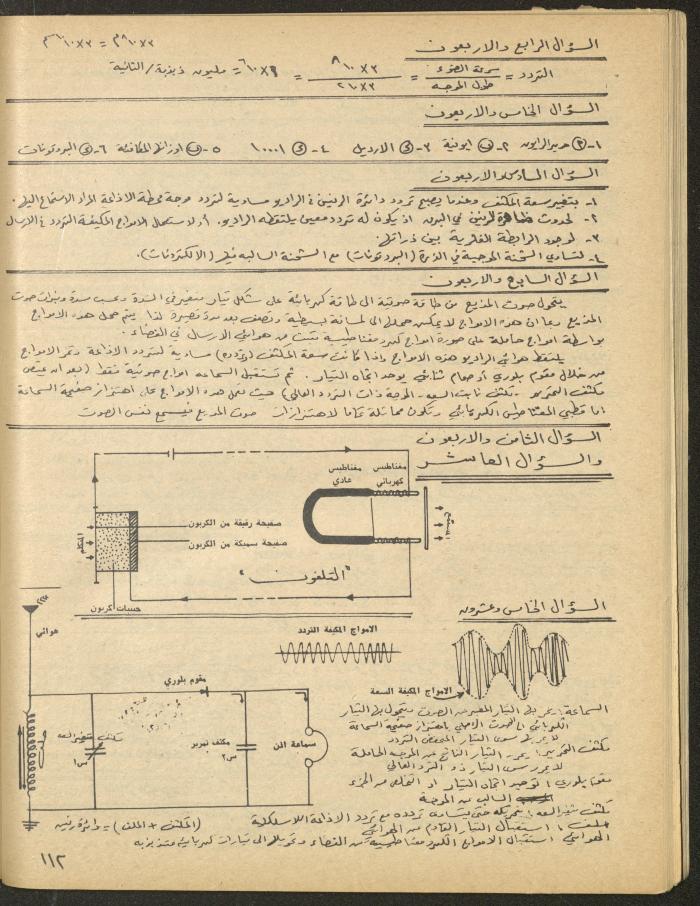 السؤال الرابع والاربعون
التردد = سرعة الضوء / طول الموجه = ٣×١٠٨ / ٣×١٠٢ = ١٠٦ = مليون ذبذبة/الثانية
السؤال الخامس والاربعون
٢- ايونية ٣- الاردبل ٤- ١٠٠٠١ ٥- اوزانها المكافئة ٦- البروتونات
السؤال السادس والاربعون
١- بتغيير سعة المكثف وعندما يصبح تردد دائرة الرنين في الراديو مساوية لتردد موجة محطة الاذاعة المراد الاستماع اليها.
٢- لحدوث ظاهرة الرنين في اذ يكون له تردد معين يلتقطه الراديو. أو لاستعمال الامواج المكيفة التردد في الارسال
٣- لوجود الرابطة الفلزية بين ذراتها.
٤- لتساوي الشحنة الموجبة في الذرة (البروتونات) مع الشحنة السالبه فيها (الالكترونات).
السؤال السابع والاربعون
يتحول صوت المذيع من طاقة صوتية الى طاقة كهربائية على شكل تيار متغير في الشدة وحسب شدة ونبرات صوت
المذيع وبما ان هذه الامواج لا يمكن حملها الى لمسافة بسيطة وتضعف بعد مدة قصيرة لذا يتم حمل هذه الامواج
بواسطة امواج حاملة على صورة امواج كهرومغناطيسية تنبث من هوائي الارسال في الفضاء.
يلتقط هوائي الراديو هذه الامواج واذا كانت سعة المكثف مساوية لتردد الاذاعة وتمر الامواج
من خلال مقوم بلوري أو صمام ثنائي يوحد اتجاه التيار. ثم تستقبل السماعه امواج صوتية فقط (بعد ان يمتص
مكثف التمرير - مكثف ثابت السعه - الموجة ذات التردد العالي) حيث تعمل هذه الامواج على اهتزاز صفيحة السماعة
اما قطبي المغناطيس الكهربائي وتكون مماثلة تماما لاهتزازات صوت المذيع فيسمع نفس الصوت
السؤال الثامن والاربعون
والسؤال العاشر
مغناطيس عادي
مغناطيس كهربائي
صفيحة رقيقة من الكربون
صفيحة سميكة من الكربون
المتكلم
"التلفون"
حبيبات كربون
السؤال الخامس وعشرون
الامواج المكيفة التردد
الامواج المكيفة السعة
هوائي
مقوم بلوري
مكثف متغير السعه
س١
ملف
مكثف تمرير
س٢
سماعة اذن
السماعة : يمر بها التيار المعبر عن الصوت ويتحول بها التيار
الكهربائي الى الصوت الاصلي باهتزاز صفيحة السماعة
لا يمر بها سوى التيار المنخفض التردد
مكثف التمرير: يمرر التيار الناتج عن الموجه الحاملة
لا يمرر سوى التيار ذو التردد العالي
مقوم بلوري : توحيد اتجاه التيار او التخلص من الجزء
السالب من الموجة
مكثف متغير السعه : تحريكه حتى يتساوى تردده مع تردد الاذاعة اللاسلكية
ملف : استقبال التيار القادم من الهوائي (المكثف + الملف) = دائرة رنين
الهوائي : استقبال الامواج الكهرومغناطيسية من الفضاء وتحويلها الى تيارات كهربائية متذبذبه
١١٢